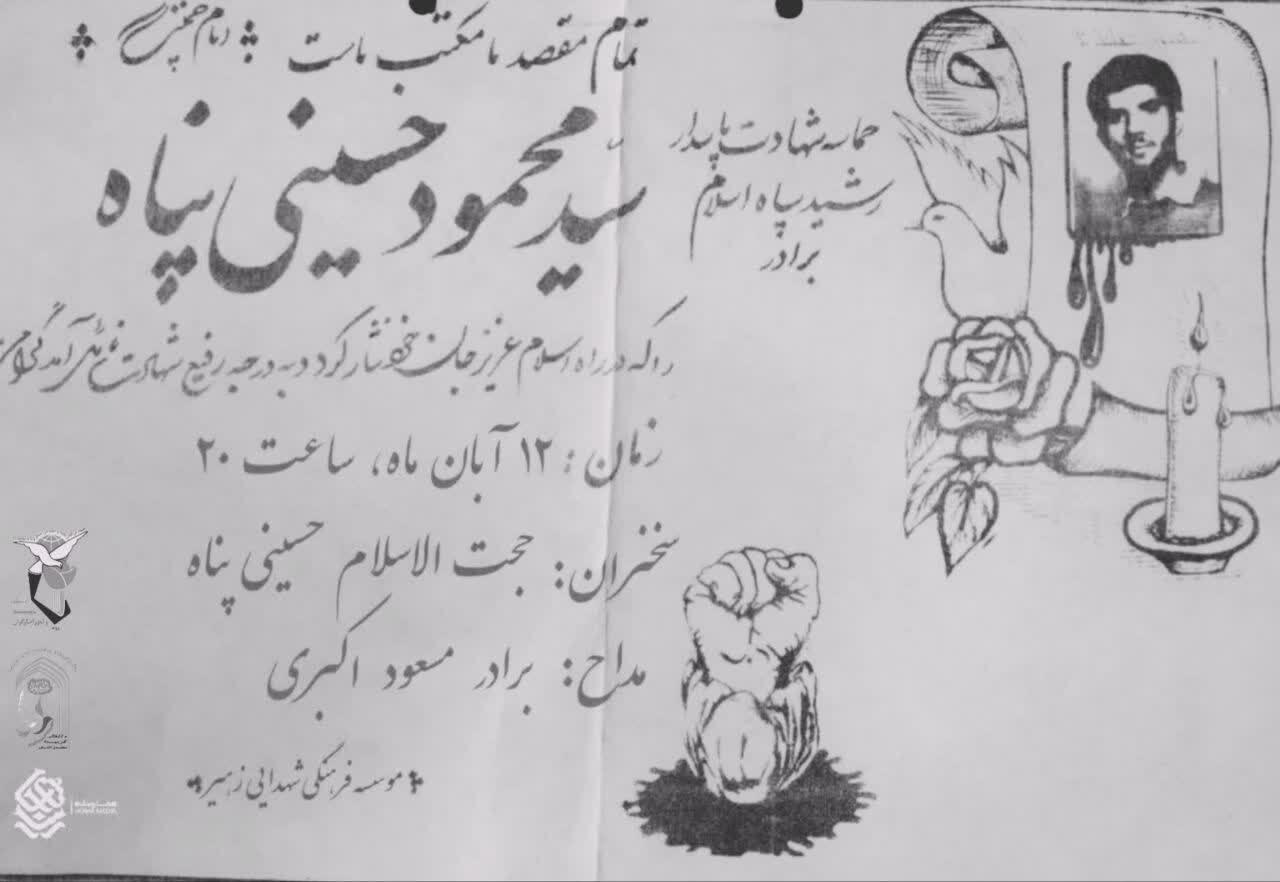 تمام مقصد ما مکتب ماست
امام خمینی
حماسه شهادت پاپدار
رشید سپاه اسلام
برادر
سید محمود حسینی پناه
را که در راه اسلام عزیز جان خود نثار کرد و به درجه رفیع شهادت نائل آمد گرامی
زمان: ۱۲ آبان ماه، ساعت ۲۰
سخنران: حجت الاسلام حسینی پناه
مداح: برادر مسعود اکبری
موسسه فرهنگی شهدایی زهیر